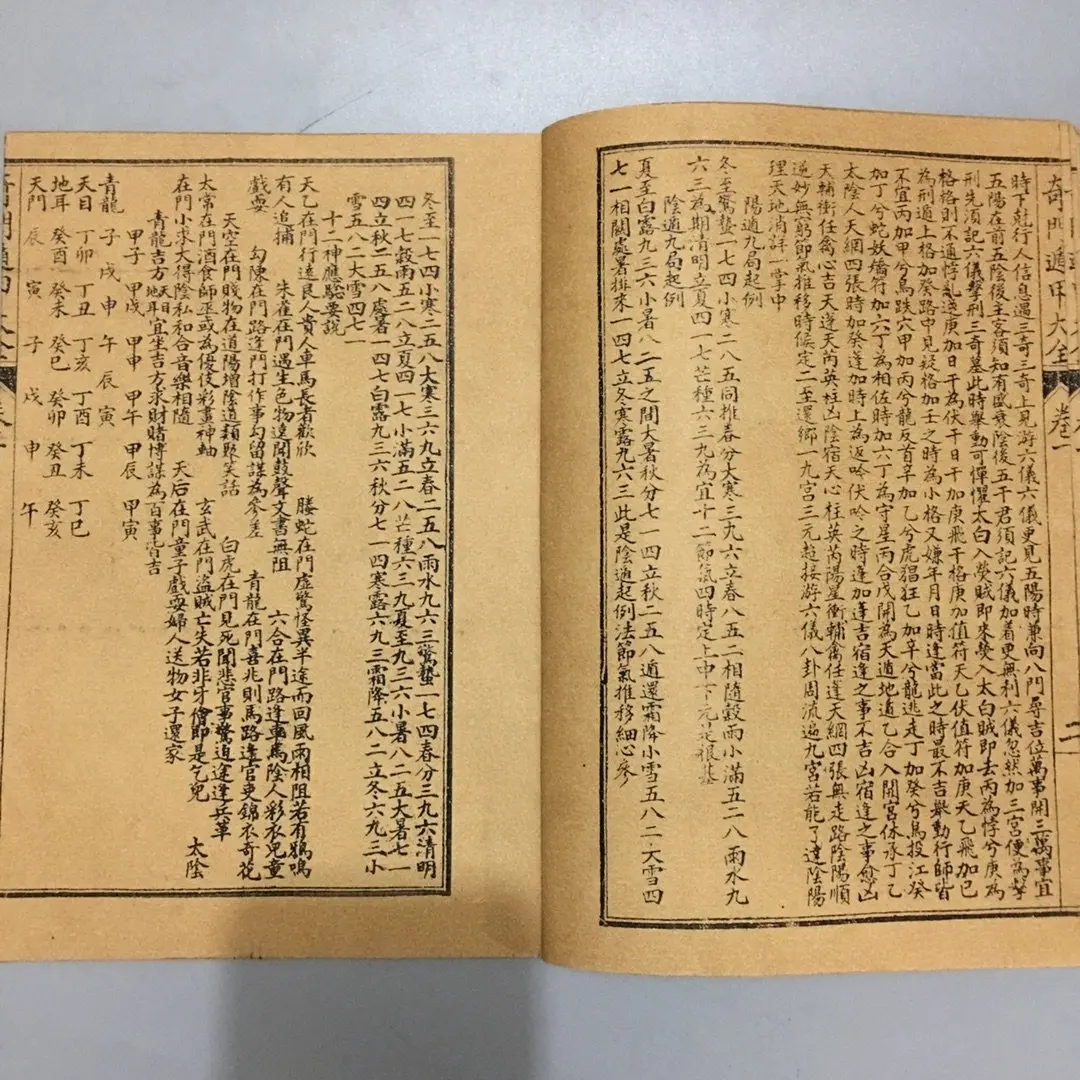 奇門遁甲大全
卷二
二
時下尅行人信息遇三奇三奇上見游六儀六儀更見五陽時兼向八門尋吉位萬事開三萬事宜
五陽在前五陰後主客須知有𧁨衰陰後五干君須記六儀加着更無利六儀忽然加三宮便為擊
刑先須記六儀擊刑三奇墓此時舉動可憚懼太白入熒賊即來熒入太白賊即去丙為悖兮庚為
格格則不通悖亂逆庚加日干為伏干日干加庚飛干格庚加值符天乙伏值符加庚天乙飛加巳
為刑遁上格加癸路中見疑格加壬之時為小格又嫌年月日時逢當此之時最不吉舉動行師皆
不宜丙加甲兮鳥跌穴甲加丙兮龍反首辛加乙兮虎猖狂乙加辛兮龍逃走丁加癸兮鳥投江癸
加丁兮蛇妖嬌符加六丁為相佐時加六丁為守星丙合戊開為天遁地遁乙合入開宮休承丁乙
太陰人天網四張時加癸逢加時上為返吟伏吟之時逢加逢吉宿逢之事不吉凶宿逢之事愈凶
天輔衝任禽心吉天逢天芮英柱凶陰宿天心柱英芮陽星衝輔禽任逢天網四張無走路陰陽順
逆妙無窮節氣推移時候定二至還鄉一九宮三元超接游六儀八卦周流遍九宮若能了達陰陽
理天地消詳一掌中
陽遁九局起例
冬至驚蟄一七四小寒二八五同推春分大寒三九六立春八五二相隨穀雨小滿五二八雨水九
六三為期清明立夏四一七芒種六三九為宜十二節氣四時定上中下元是根基
陰遁九局起例
夏至白露九三六小暑八二五之間大暑秋分七一四立秋二五八遁還霜降小雪五八二大雪四
七一相關處暑排來一四七立冬寒露九六三此是陰遁起例法節氣推移細心參
冬至一七四小寒二五八大寒三六九立春二五八雨水九六三驚蟄一七四春分三九六清明
四一七穀雨五二八立夏四一七小滿五二八芒種六三九夏至九三六小暑八二五大暑七一
四立秋二五八處暑一四七白露九三六秋分七一四寒露六九三霜降五八二立冬六九三小
雪五八二大雪四七一
十二神應驗要說
天乙在門行遠良人貴人車馬長者歡欣 騰蛇在門虛驚怪異半途而回風雨相阻若有鴉鳴
有人追捕 朱雀在門遇生色物遠聞鼓聲文書無阻 六合在門路逢車馬陰人彩衣兒童
戲耍 勾陳在門路逢門打作事勾留謀為參差 青龍在門喜兆則馬路逢官吏錦衣奇花
天空在門賤物在道陽增陰道類聚笑話 白虎在門見死聞悲官事驚迫逢逢兵革
太常在門酒食師巫或為優伎彩畫神軸 玄武在門盜賊亡失若非牙儈節是乞兒 太陰
在門小求大得陰私和合音樂相隨 天后在門童子戲耍婦人送物女子還家
青龍吉方天目地耳宜坐吉方求財賭博謀為百事皆吉
甲子 甲戌 甲申 甲午 甲辰 甲寅
青龍 子 戌 申 午 辰 寅
天目 丁卯 丁丑 丁亥 丁酉 丁未 丁巳
地耳 癸酉 癸未 癸巳 癸卯 癸丑 癸亥
天門 辰 寅 子 戌 申 午